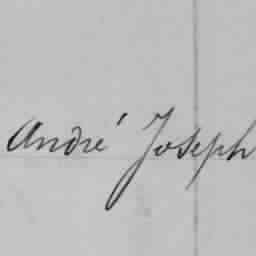 André Joseph